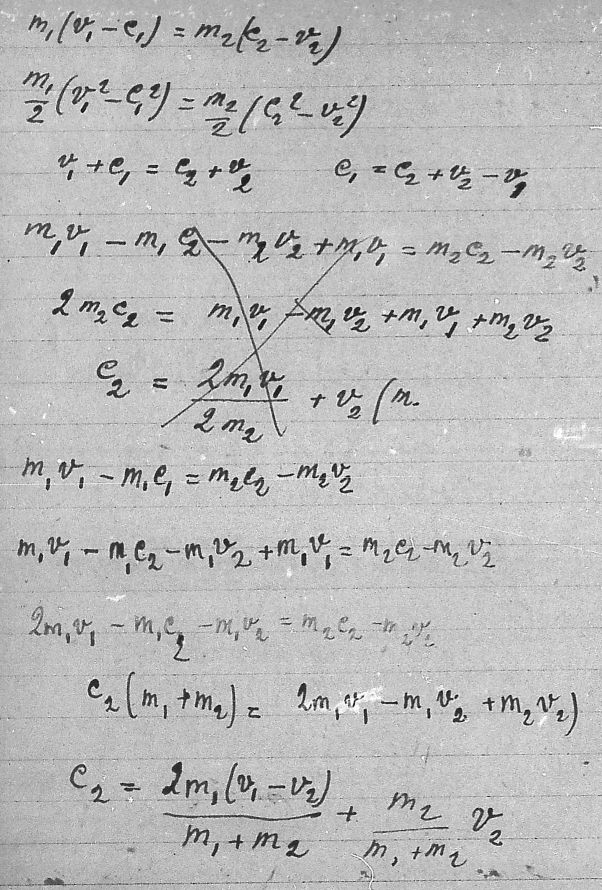 m₁(v₁ − c₁) = m₂(c₂ − v₂)
m₁/2 (v₁² − c₁²) = m₂/2 (c₂² − v₂²)
v₁ + c₁ = c₂ + v₂ c₁ = c₂ + v₂ − v₁
m₁v₁ − m₁c₂ − m₂v₂ + m₁v₁ = m₂c₂ − m₂v₂
2m₂c₂ = m₁v₁ − m₁v₂ + m₁v₁ + m₂v₂
c₂ = 2m₁v₁/2m₂ + v₂ (m.
m₁v₁ − m₁c₁ = m₂c₂ − m₂v₂
m₁v₁ − m₁c₂ − m₁v₂ + m₁v₁ = m₂c₂ − m₂v₂
2m₁v₁ − m₁c₂ − m₁v₂ = m₂c₂ − m₂v₂
c₂(m₁ + m₂) = 2m₁v₁ − m₁v₂ + m₂v₂)
c₂ = 2m₁(v₁ − v₂)/m₁ + m₂ + m₂/m₁ + m₂ v₂